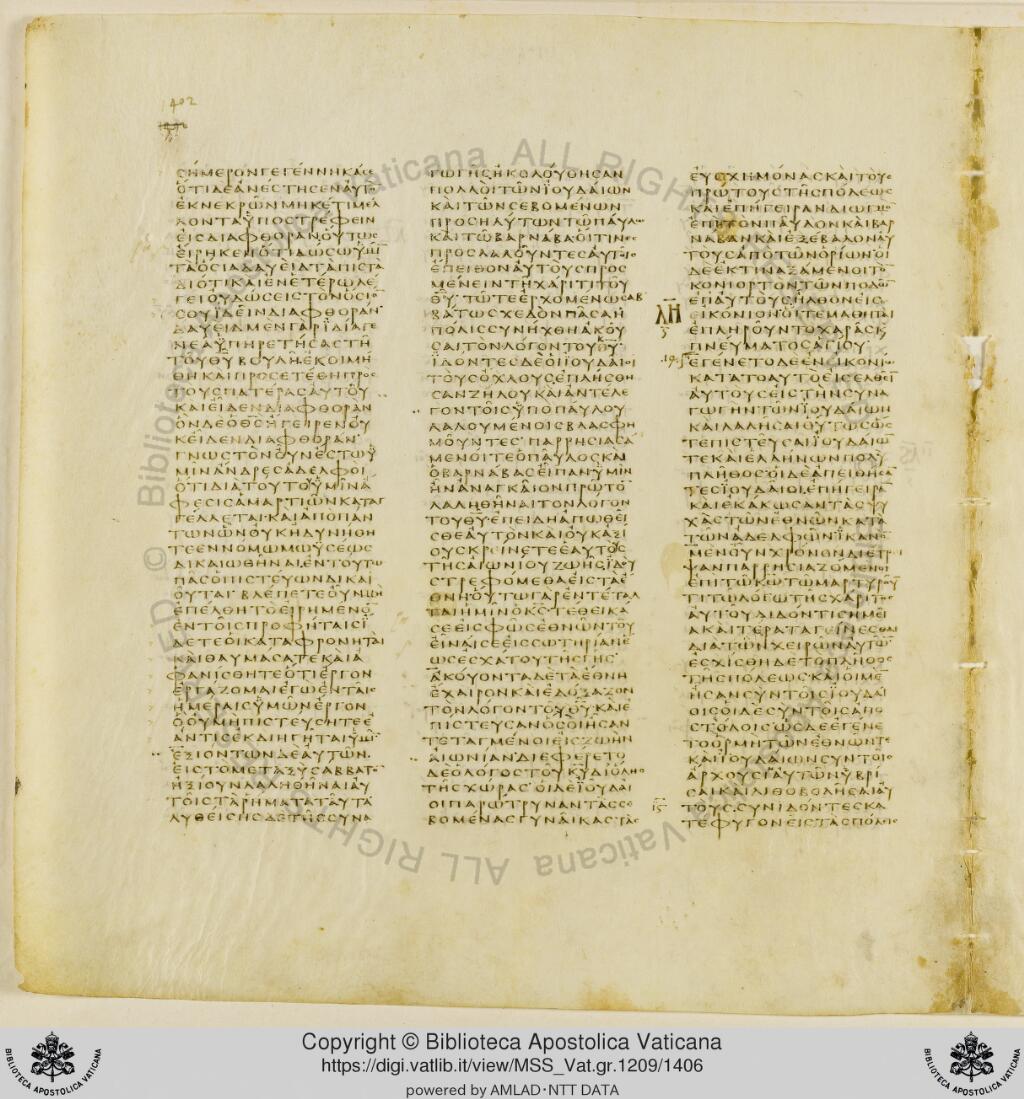 1402
ϹΗΜΕΡΟΝΓΕΓΕΝΝΗΚΑϹΕ
ΟΤΙΔΕΑΝΕϹΤΗϹΕΝΑΥΤΟ
ΕΚΝΕΚΡΩΝΜΗΚΕΤΙΜΕΛ
ΛΟΝΤΑΥΠΟϹΤΡΕΦΕΙΝ
ΕΙϹΔΙΑΦΘΟΡΑΝΟΥΤΩϹ
ΕΙΡΗΚΕΝΟΤΙΔΩϹΩΥΜΙ
ΤΑΟϹΙΑΔΑΥΕΙΔΤΑΠΙϹΤΑ
ΔΙΟΤΙΚΑΙΕΝΕΤΕΡΩΛΕ
ΓΕΙΟΥΔΩϹΕΙϹΤΟΝΟϹΙΟ
ϹΟΥΙΔΕΙΝΔΙΑΦΘΟΡΑΝ
ΔΑΥΕΙΔΜΕΝΓΑΡΙΔΙΑΓΕ
ΝΕΑΥΠΗΡΕΤΗϹΑϹΤΗ
ΤΟΥΘΥΒΟΥΛΗΕΚΟΙΜΗ
ΘΗΚΑΙΠΡΟϹΕΤΕΘΗΠΡΟϹ
ΤΟΥϹΠΑΤΕΡΑϹΑΥΤΟΥ
ΚΑΙΕΙΔΕΝΔΙΑΦΘΟΡΑΝ
ΟΝΔΕΟΘϹΗΓΕΙΡΕΝΟΥ
ΚΕΙΔΕΝΔΙΑΦΘΟΡΑΝ
ΓΝΩϹΤΟΝΟΥΝΕϹΤΩΥ
ΜΙΝΑΝΔΡΕϹΑΔΕΛΦΟΙ
ΟΤΙΔΙΑΤΟΥΤΟΥΜΙΝΑ
ΦΕϹΙϹΑΜΑΡΤΙΩΝΚΑΤΑΓ
ΓΕΛΛΕΤΑΙ·ΚΑΙΑΠΟΠΑΝ
ΤΩΝΩΝΟΥΚΗΔΥΝΗΘΗ
ΤΕΕΝΝΟΜΩΜΩΥϹΕΩϹ
ΔΙΚΑΙΩΘΗΝΑΙΕΝΤΟΥΤΩ
ΠΑϹΟΠΙϹΤΕΥΩΝΔΙΚΑΙ
ΟΥΤΑΙ·ΒΛΕΠΕΤΕΟΥΝΜΗ
ΕΠΕΛΘΗΤΟΕΙΡΗΜΕΝΟ
ΕΝΤΟΙϹΠΡΟΦΗΤΑΙϹΙ
ΔΕΤΕΟΙΚΑΤΑΦΡΟΝΗΤΑΙ
ΚΑΙΘΑΥΜΑϹΑΤΕΚΑΙΑ
ΦΑΝΙϹΘΗΤΕΟΤΙΕΡΓΟΝ
ΕΡΓΑΖΟΜΑΙΕΓΩΕΝΤΑΙϹ
ΗΜΕΡΑΙϹΥΜΩΝΕΡΓΟΝ
ΟΟΥΜΗΠΙϹΤΕΥϹΗΤΕΕ
ΑΝΤΙϹΕΚΔΙΗΓΗΤΑΙΥΜΙ
ΕΞΙΟΝΤΩΝΔΕΑΥΤΩΝ
ΕΙϹΤΟΜΕΤΑΞΥϹΑΒΒΑΤΟ
ΗΞΙΟΥΝΛΑΛΗΘΗΝΑΙΑΥ
ΤΟΙϹΤΑΡΗΜΑΤΑΤΑΥΤΑ
ΛΥΘΕΙϹΗϹΔΕΤΗϹϹΥΝΑ
ΓΩΓΗϹΗΚΟΛΟΥΘΗϹΑΝ
ΠΟΛΛΟΙΤΩΝΙΟΥΔΑΙΩΝ
ΚΑΙΤΩΝϹΕΒΟΜΕΝΩΝ
ΠΡΟϹΗΛΥΤΩΝΤΩΠΑΥΛΩ
ΚΑΙΤΩΒΑΡΝΑΒΑΟΙΤΙΝΕϹ
ΠΡΟϹΛΑΛΟΥΝΤΕϹΑΥΤΟΙϹ
ΕΠΕΙΘΟΝΑΥΤΟΥϹΠΡΟϹ
ΜΕΝΕΙΝΤΗΧΑΡΙΤΙΤΟΥ
ΘΥ·ΤΩΤΕΕΡΧΟΜΕΝΩϹΑΒ
ΒΑΤΩϹΧΕΔΟΝΠΑϹΑΗ
ΠΟΛΙϹϹΥΝΗΧΘΗΑΚΟΥ
ϹΑΙΤΟΝΛΟΓΟΝΤΟΥΘΥ
ΙΔΟΝΤΕϹΔΕΟΙΙΟΥΔΑΙΟΙ
ΤΟΥϹΟΧΛΟΥϹΕΠΛΗϹΘΗ
ϹΑΝΖΗΛΟΥΚΑΙΑΝΤΕΛΕ
ΓΟΝΤΟΙϹΥΠΟΠΑΥΛΟΥ
ΛΑΛΟΥΜΕΝΟΙϹΒΛΑϹΦΗ
ΜΟΥΝΤΕϹ·ΠΑΡΡΗϹΙΑϹΑ
ΜΕΝΟΙΤΕΟΠΑΥΛΟϹΚΑΙ
ΟΒΑΡΝΑΒΑϹΕΙΠΑΝΥΜΙΝ
ΗΝΑΝΑΓΚΑΙΟΝΠΡΩΤΟ
ΛΑΛΗΘΗΝΑΙΤΟΝΛΟΓΟΝ
ΤΟΥΘΥ·ΕΠΕΙΔΗΑΠΩΘΕΙ
ϹΘΕΑΥΤΟΝΚΑΙΟΥΚΑΞΙ
ΟΥϹΚΡΕΙΝΕΤΕΕΑΥΤΟΥϹ
ΤΗϹΑΙΩΝΙΟΥΖΩΗϹΙΔΟΥ
ϹΤΡΕΦΟΜΕΘΑΕΙϹΤΑΕ
ΘΝΗΟΥΤΩΓΑΡΕΝΤΕΤΑΛ
ΤΑΙΗΜΙΝΟΚϹ·ΤΕΘΕΙΚΑ
ϹΕΕΙϹΦΩϹΕΘΝΩΝΤΟΥ
ΕΙΝΑΙϹΕΕΙϹϹΩΤΗΡΙΑΝΕ
ΩϹΕϹΧΑΤΟΥΤΗϹΓΗϹ
ΑΚΟΥΟΝΤΑΔΕΤΑΕΘΝΗ
ΕΧΑΙΡΟΝΚΑΙΕΔΟΞΑΖΟΝ
ΤΟΝΛΟΓΟΝΤΟΥΘΥΚΑΙΕ
ΠΙϹΤΕΥϹΑΝΟϹΟΙΗϹΑΝ
ΤΕΤΑΓΜΕΝΟΙΕΙϹΖΩΗΝ
ΑΙΩΝΙΑΝΔΙΕΦΕΡΕΤΟ
ΔΕΟΛΟΓΟϹΤΟΥΚΥΔΙΟΛΗϹ
ΤΗϹΧΩΡΑϹ·ΟΙΔΕΙΟΥΔΑΙ
ΟΙΠΑΡΩΤΡΥΝΑΝΤΑϹϹΕ
ΒΟΜΕΝΑϹΓΥΝΑΙΚΑϹΤΑϹ
ΕΥϹΧΗΜΟΝΑϹΚΑΙΤΟΥϹ
ΠΡΩΤΟΥϹΤΗϹΠΟΛΕΩϹ
ΚΑΙΕΠΗΓΕΙΡΑΝΔΙΩΓΜΟ
ΕΠΙΤΟΝΠΑΥΛΟΝΚΑΙΒΑΡ
ΝΑΒΑΝΚΑΙΕΞΕΒΑΛΟΝΑΥ
ΤΟΥϹΑΠΟΤΩΝΟΡΙΩΝΟΙ
ΔΕΕΚΤΙΝΑΞΑΜΕΝΟΙΤΟ
ΚΟΝΙΟΡΤΟΝΤΩΝΠΟΔΩ
ΕΠΑΥΤΟΥϹΗΛΘΟΝΕΙϹ
ΛΗ
ΕΙΚΟΝΙΟΝΟΙΤΕΜΑΘΗΤΑΙ
ΕΠΛΗΡΟΥΝΤΟΧΑΡΑϹΚ
ΠΝΕΥΜΑΤΟϹΑΓΙΟΥ
ΕΓΕΝΕΤΟΔΕΕΝΙΚΟΝΙΩ
ΚΑΤΑΤΟΑΥΤΟΕΙϹΕΛΘΕΙ
ΑΥΤΟΥϹΕΙϹΤΗΝϹΥΝΑ
ΓΩΓΗΝΤΩΝΙΟΥΔΑΙΩΝ
ΚΑΙΛΑΛΗϹΑΙΟΥΤΩϹΩϹ
ΤΕΠΙϹΤΕΥϹΑΙΙΟΥΔΑΙΩ
ΤΕΚΑΙΕΛΛΗΝΩΝΠΟΛΥ
ΠΛΗΘΟϹ·ΟΙΔΕΑΠΕΙΘΗϹΑ
ΤΕϹΙΟΥΔΑΙΟΙΕΠΗΓΕΙΡΑ
ΚΑΙΕΚΑΚΩϹΑΝΤΑϹΨΥ
ΧΑϹΤΩΝΕΘΝΩΝΚΑΤΑ
ΤΩΝΑΔΕΛΦΩΝΙΚΑΝΟ
ΜΕΝΟΥΝΧΡΟΝΟΝΔΙΕΤΡΙ
ΨΑΝΠΑΡΡΗϹΙΑΖΟΜΕΝΟΙ
ΕΠΙΤΩΚΩΤΩΜΑΡΤΥΡΟΥ
ΤΙΤΩΛΟΓΩΤΗϹΧΑΡΙΤΟϹ
ΑΥΤΟΥΔΙΔΟΝΤΙϹΗΜΕΙ
ΑΚΑΙΤΕΡΑΤΑΓΕΙΝΕϹΘΑΙ
ΔΙΑΤΩΝΧΕΙΡΩΝΑΥΤΩ
ΕϹΧΙϹΘΗΔΕΤΟΠΛΗΘΟϹ
ΤΗϹΠΟΛΕΩϹΚΑΙΟΙΜΕ
ΗϹΑΝϹΥΝΤΟΙϹΙΟΥΔΑΙ
ΟΙϹΟΙΔΕϹΥΝΤΟΙϹΑΠΟ
ϹΤΟΛΟΙϹΩϹΔΕΕΓΕΝΕ
ΤΟΟΡΜΗΤΩΝΕΘΝΩΝΤΕ
ΚΑΙΙΟΥΔΑΙΩΝϹΥΝΤΟΙϹ
ΑΡΧΟΥϹΙΑΥΤΩΝΥΒΡΙ
ϹΑΙΚΑΙΛΙΘΟΒΟΛΗϹΑΙΑΥ
ΤΟΥϹ·ϹΥΝΙΔΟΝΤΕϹΚΑ
ΤΕΦΥΓΟΝΕΙϹΤΑϹΠΟΛΕΙϹ
Copyright © Biblioteca Apostolica Vaticana
https://digi.vatlib.it/view/MSS_Vat.gr.1209/1406
powered by AMLAD·NTT DATA
BIBLIOTECA APOSTOLICA VATICANA
BIBLIOTECA APOSTOLICA VATICANA